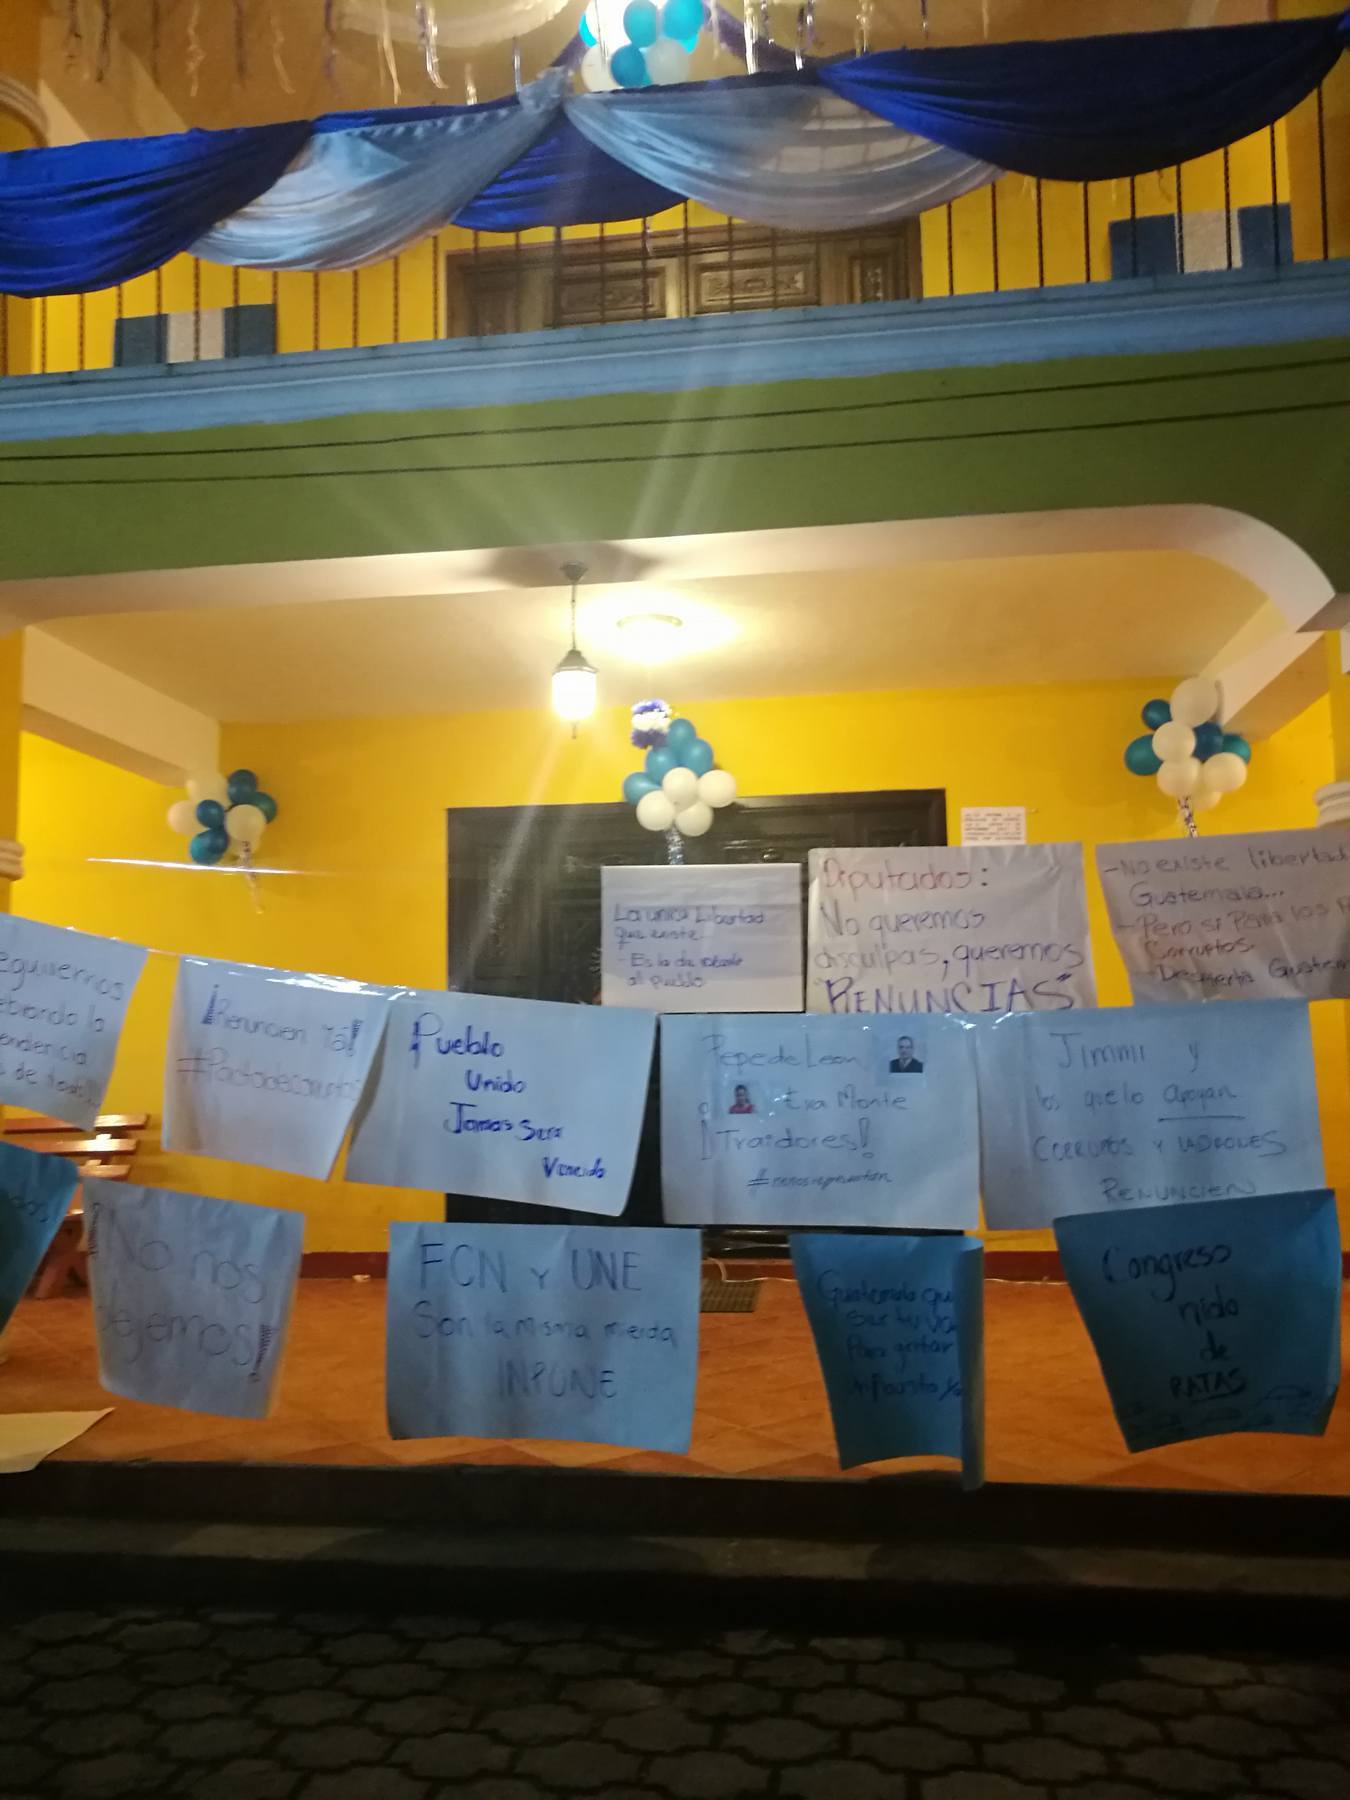 La unica Libertad
que existe
- Es la de robarle
al pueblo
Diputados:
No queremos
disculpas, queremos
"RENUNCIAS"
-No existe libertad
Guatemala...
-Pero si Para los
Corruptos.
-Despierta
eguiremos
ebrando la
endencia
s de todo!!!
¡Renuncien Ya!
#Pactodecorruptos
¡Pueblo
Unido
Jamas Sera
Vencido
Pepe de Leon
Eva Monte
¡Traidores!
#nonosrepresentan
Jimmi y
los que lo apoyan
CORRUPTOS Y LADRONES
RENUNCIEN
dos
¡No nos
dejemos!
FCN Y UNE
Son la misma mierda
INPUNE
Guatemala que
Para gritar
Congreso
nido
de
RATAS